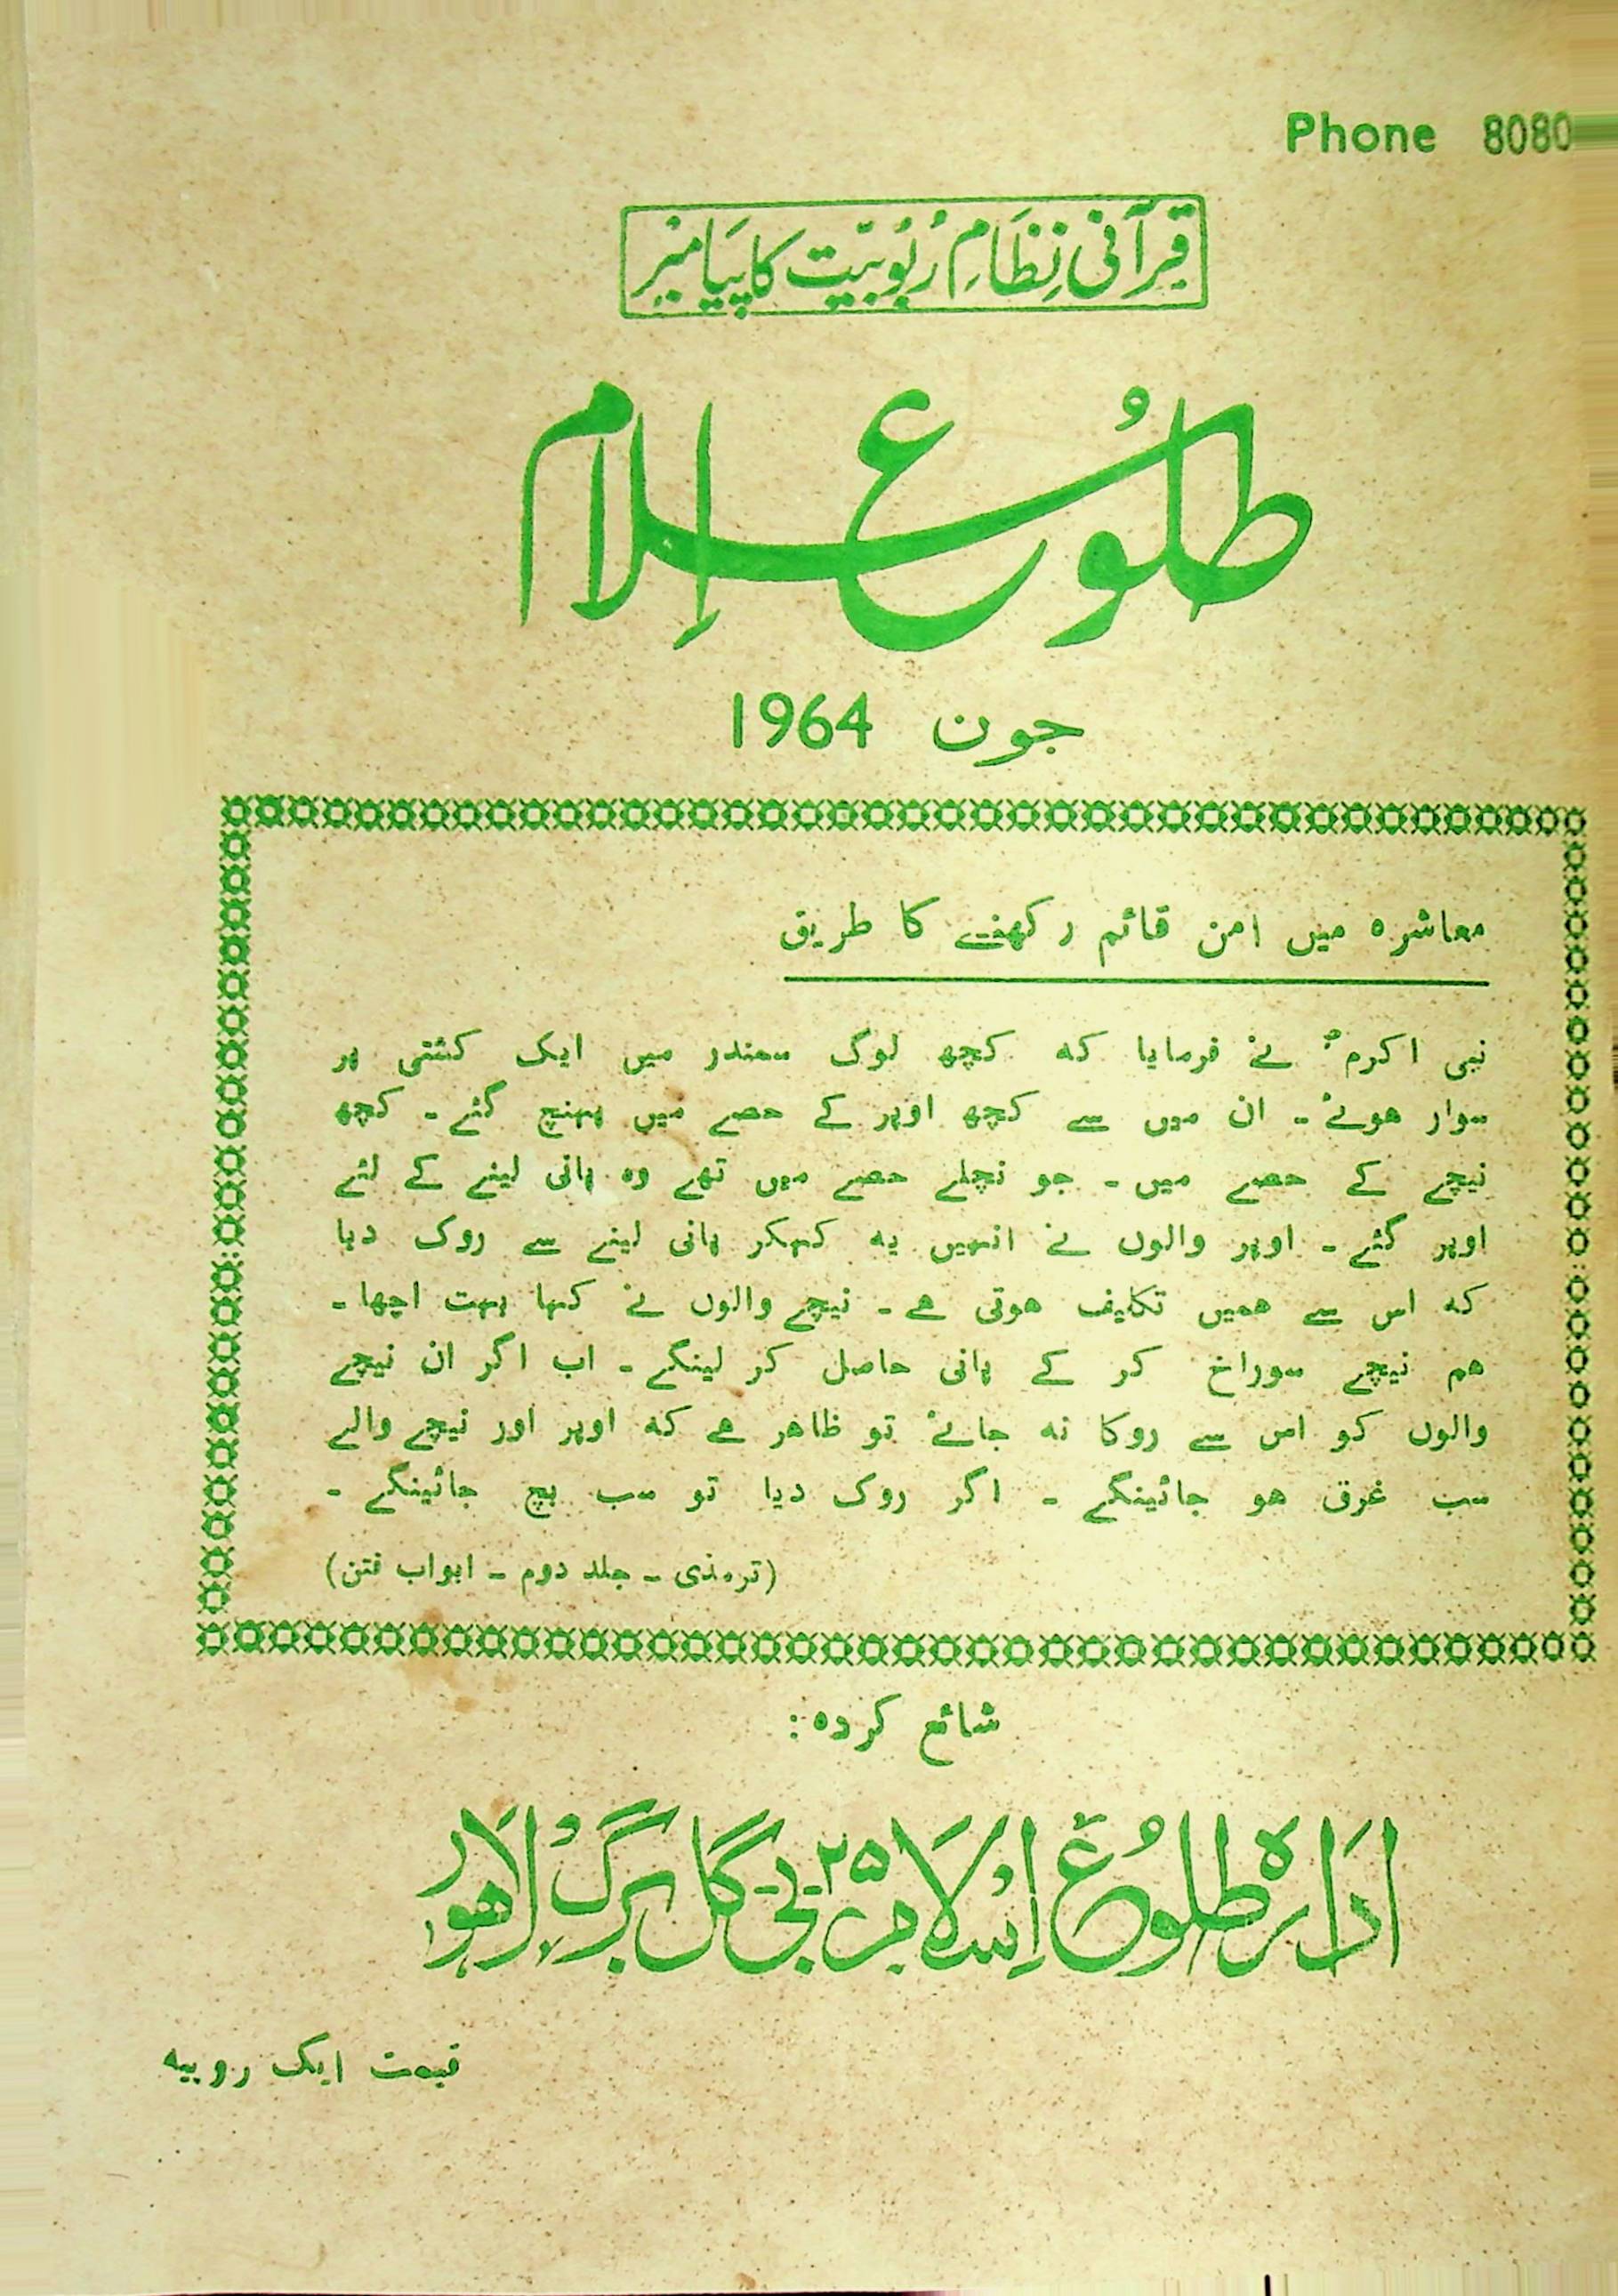 Phone 8080
قرآنی نظامِ ربوبیّت کا پیامبر
طلوعِ اسلام
جون 1964
معاشرہ میں امن قائم رکھنے کا طریق
نبی اکرمؐ نے فرمایا کہ کچھ لوگ سمندر میں ایک کشتی پر
سوار ہوئے ۔ ان میں سے کچھ اوپر کے حصے میں پہنچ گئے ۔ کچھ
نیچے کے حصے میں ۔ جو نچلے حصے میں تھے وہ پانی لینے کے لئے
اوپر گئے ۔ اوپر والوں نے انہیں یہ کہکر پانی لینے سے روک دیا
کہ اس سے ہمیں تکلیف ہوتی ہے ۔ نیچے والوں نے کہا بہت اچھا ۔
ہم نیچے سوراخ کر کے پانی حاصل کر لینگے ۔ اب اگر ان نیچے
والوں کو اس سے روکا نہ جائے تو ظاہر ہے کہ اوپر اور نیچے والے
سب غرق ہو جائینگے ۔ اگر روک دیا تو سب بچ جائینگے ۔
(ترمذی ۔ جلد دوم ۔ ابواب فتن)
شائع کردہ:
ادارہ طلوعِ اسلام ۲۵ بی گلبرگ لاہور
قیمت ایک روپیہ